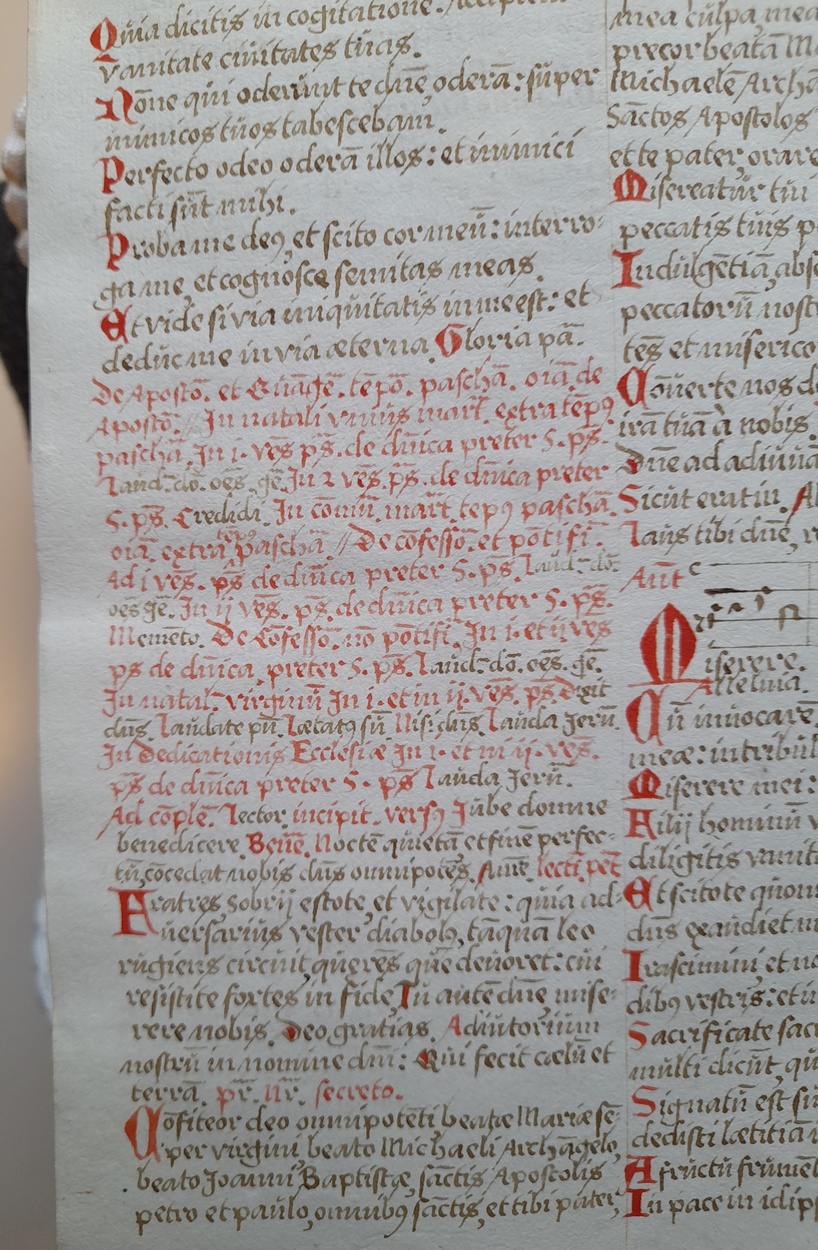 Quia dicitis in cogitatione. Accipient
vanitate civitates tuas.
Nõne qui oderunt te dñe, oderã: super
inimicos tuos tabescebam.
Perfecto odeo oderã illos: et inimici
facti sũt mihi.
Proba me deꝰ, et scito cor meũ: interro-
ga me, et cognosce semitas meas.
Et vide si via iniquitatis in me est: et
deduc me in via æterna. Gloria pã.
De Apostõ. et Euãgẽ. tẽpõ. paschã. oĩa de
Apostõ. // In natali unius mart̃. extra tẽpꝰ
paschã, In i. vẽs p̃s. de dñica preter 5. p̃s.
laud: dõ. oẽs. gẽ. In 2 vẽs. p̃s. de dñica preter
5. p̃s. Credidi. In cõmu. mart̃ tẽpꝰ paschã.
oĩa. extra tẽpꝰ paschã // De cõfessõ. et põtifi.
Ad i vẽs. p̃s de dñica preter 5. p̃s. laud: dõ:
oẽs gẽ. In ij vẽs. p̃s. de dñica preter 5. p̃s.
Memẽto. De Cõfessõ. nõ põtifi. In i. et ij vẽs
p̃s de dñica. preter 5. p̃s. laud: dõ. oẽs. gẽ.
In natal: virginũ In i. et in ij. vẽs. p̃s. Dixit
dñs. laudate pũ. Lætatꝰ sũ. Nisi: dñs. Lauda Jerũ.
In Dedicationis Ecclesiæ In i. et in ij. vẽs.
p̃s de dñica preter 5. p̃s Lauda Jerũ.
Ad cõplẽ. lector incipit. versꝰ Jube domne
benedicere. Beñe. Noctẽ quietã et finẽ perfec-
tũ, cõcedat nobis dñs omnipotẽs. Amẽ. lecti. pet̃
Fratres sobrij estote, et vigilate: quia ad-
versarius vester diabolꝰ, tãquã leo
rugiens circuit, querẽs quẽ devoret: cui
resistite fortes in fide, Tu autẽ dñe mise-
rere nobis. Deo gratias. Adiutorium
nostrũ in nomine dñi: Qui fecit cælũ et
terrã. pr̃. nr̃. secreto.
Cõfiteor deo omnipotẽti beatæ Mariæ sẽ-
per virgini, beato Michaeli Archãgelo,
beato Joanni Baptistæ, sãctis Apostolis
petro et paulo, omnibꝰ sãctis, et tibi pater,
mea culpa, mea
precor beatã Ma
Michaelẽ Archã
Sãctos Apostolos
et te pater, orare
Misereatur tui
peccatis tuis p
Indulgẽtiã, abs
peccatorũ nost
tẽs et miserico
Cõverte nos d
irã tuã à nobis.
Dñe ad adiuvã
Sicut erat in. Al
laus tibi dñe, r
Ant̃
Miserere.
Alleluia.
Cũ invocarẽ
meæ: in tribul
Miserere mei:
Filij hominũ v
diligitis vanit
Et scitote quon
dñs exaudiet m
Irascimini, et no
dibꝰ vestris: et i
Sacrificate sacr
multi dicũt, qu
Signatũ est su
dedisti lætitiã i
A fructu frumẽt
In pace in idips